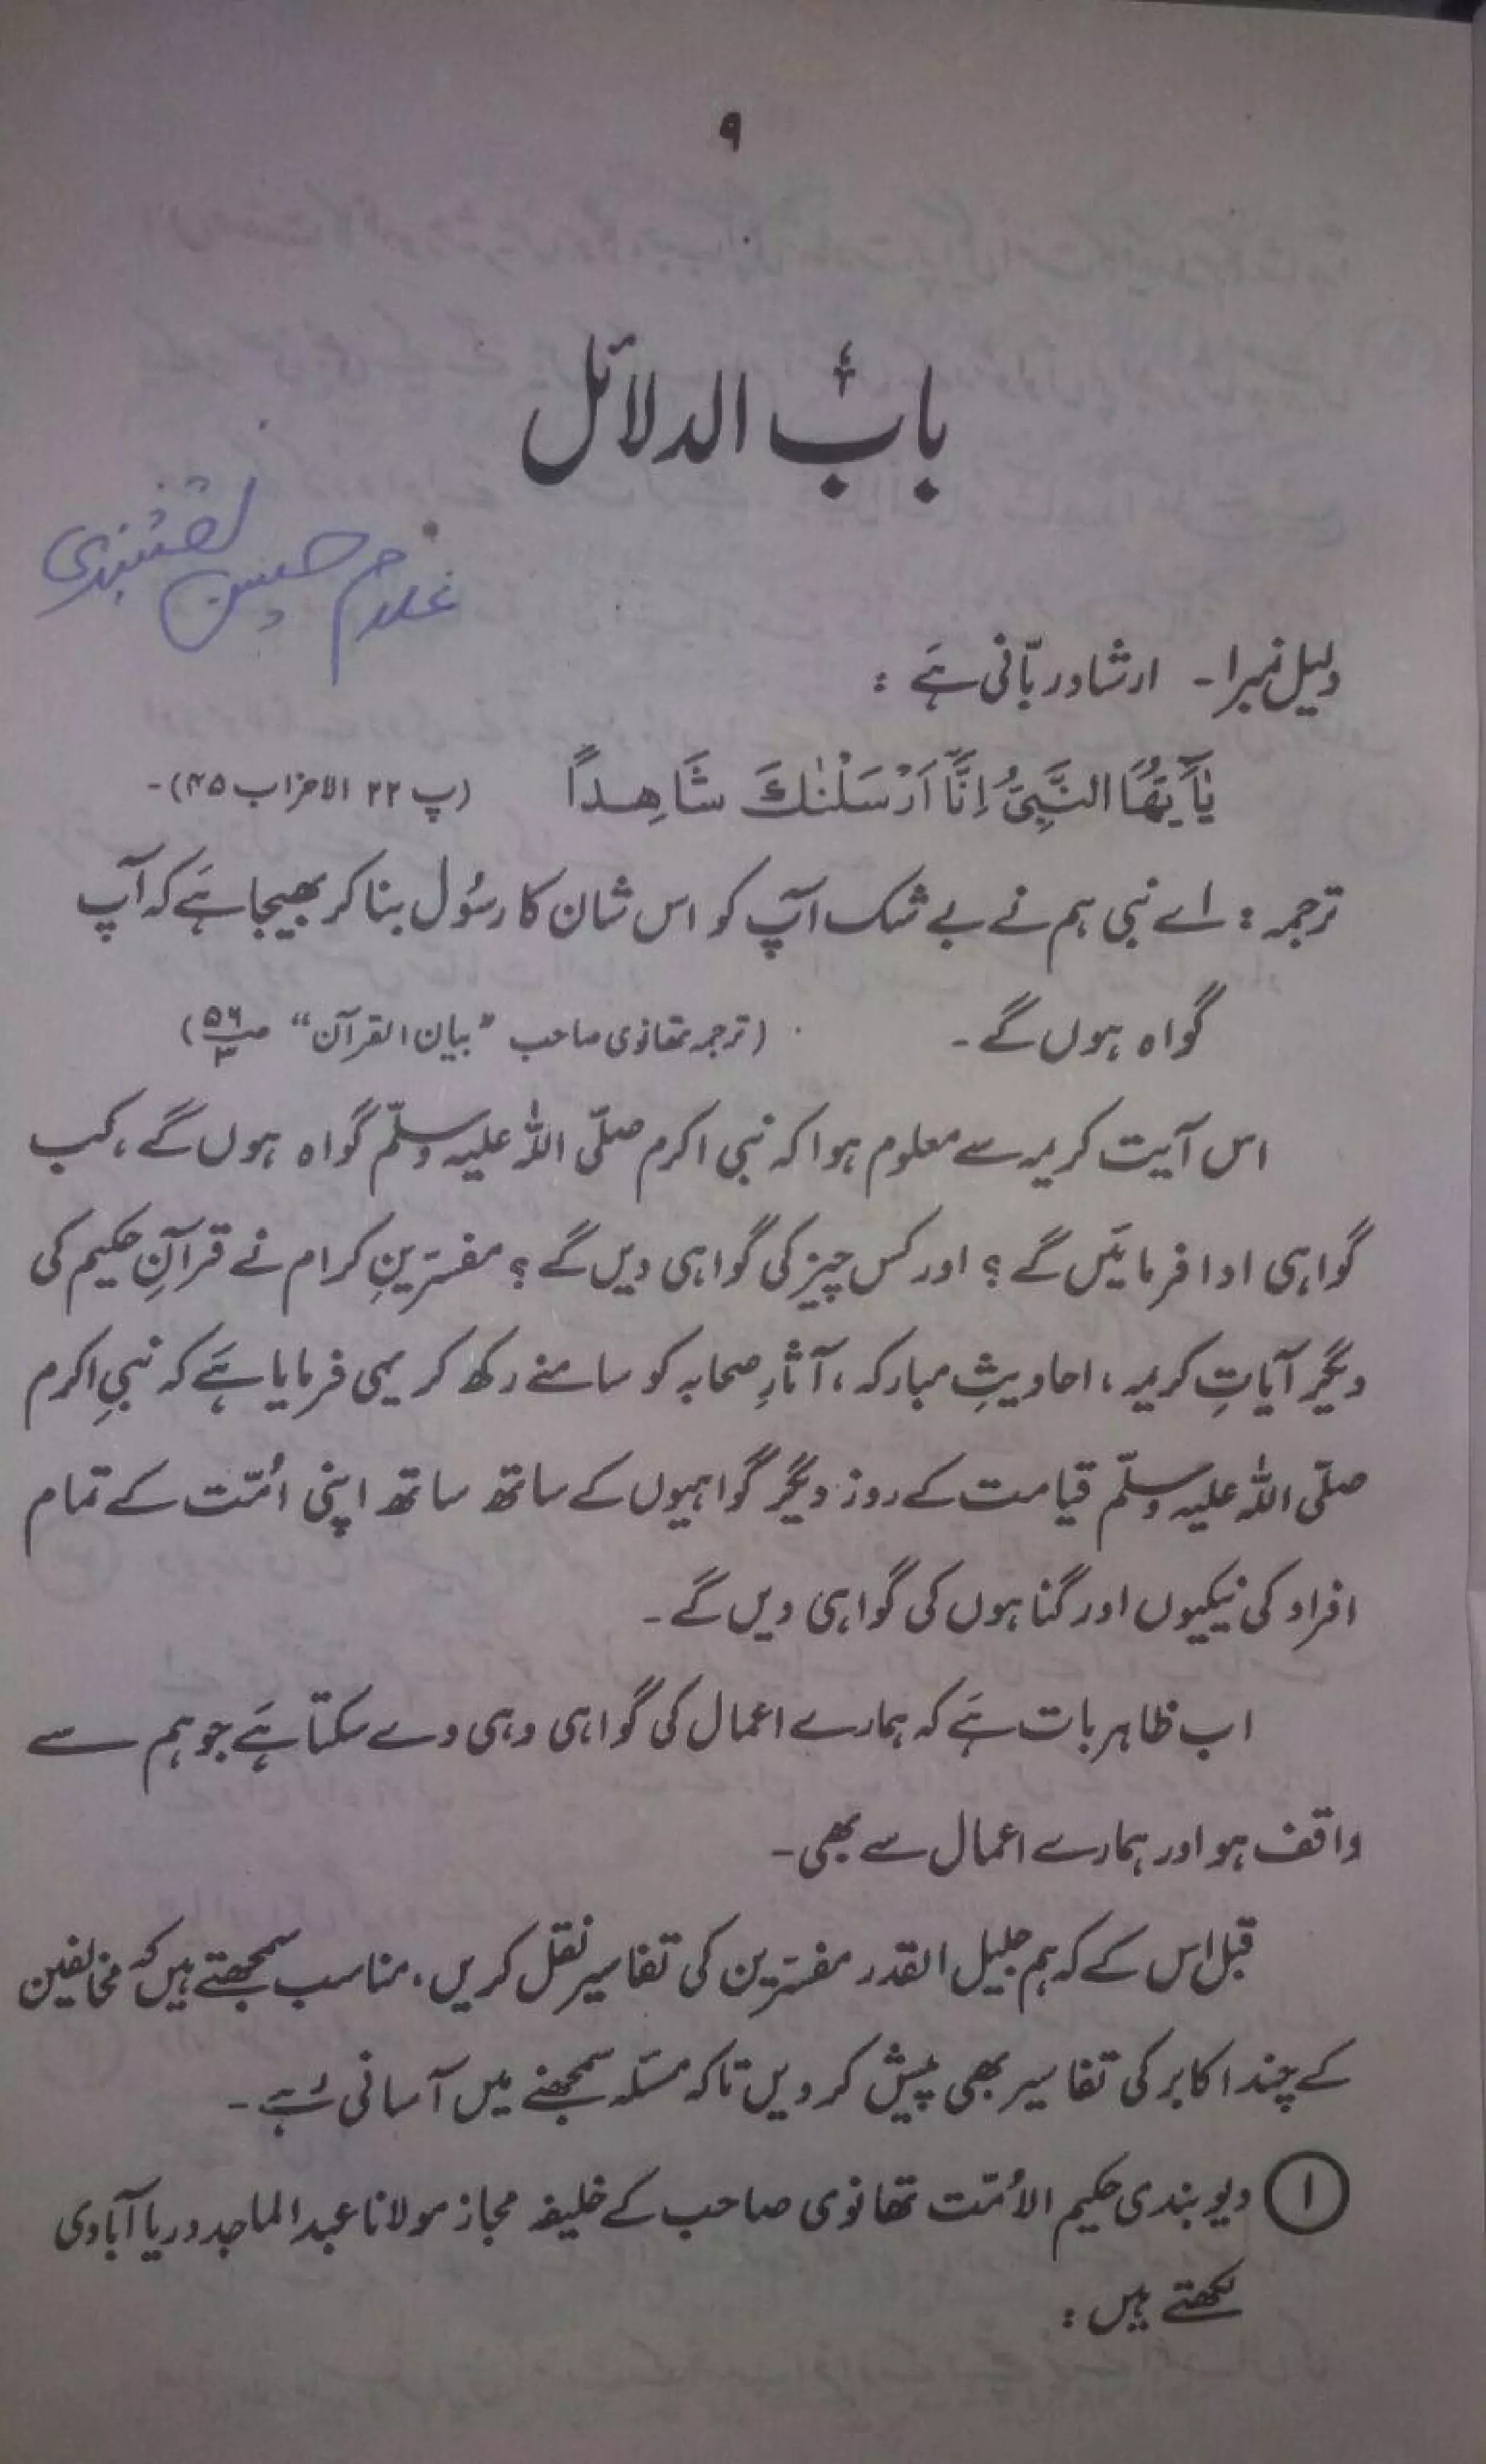 ۹
بابُ الدلائل
غلام حسین نقشبندی
دلیل نمبر۱۔ ارشادِ ربّانی ہَے :
یٰٓاَیُّھَا النَّبِیُّ اِنَّآ اَرْسَلْنٰكَ شَاهِداً (پ ۲۲ الاحزاب ۴۵)۔
ترجمہ : اے نبی ہم نے بے شک آپ کو اس شان کا رسُول بنا کر بھیجا ہَے کہ آپ
گواہ ہوں گے۔ (ترجمہ تھانوی صاحب "بیان القرآن" ص۵۶/۳)
اس آیت کریمہ سے معلوم ہوا کہ نبی اکرم صلّی اللہ علیہ وسلّم گواہ ہوں گے ، کب
گواہی ادا فرمائیں گے ؟ اور کس چیز کی گواہی دیں گے ؟ مفسّرینِ کرام نے قرآنِ حکیم کی
دیگر آیاتِ کریمہ ، احادیثِ مبارکہ ، آثارِ صحابہ کو سامنے رکھ کر یہی فرمایا ہَے کہ نبیِ اکرم
صلّی اللہ علیہ وسلّم قیامت کے روز دیگر گواہیوں کے ساتھ ساتھ اپنی اُمّت کے تمام
افراد کی نیکیوں اور گناہوں کی گواہی دیں گے ۔
اب ظاہر بات ہَے کہ ہمارے اعمال کی گواہی وہی دے سکتا ہَے جو ہم سے
واقف ہو اور ہمارے اعمال سے بھی۔
قبل اس کے کہ ہم جلیل القدر مفسّرین کی تفاسیر نقل کریں، مناسب سمجھتے ہیں کہ مخالفین
کے چند اکابر کی تفاسیر بھی پیش کر دیں تاکہ مسئلہ سمجھنے میں آسانی رُہے۔
۱ دیوبندی حکیم الاُمّت تھانوی صاحب کے خلیفہ مجاز مولانا عبدالماجد دریا آبادی
لکھتے ہیں :